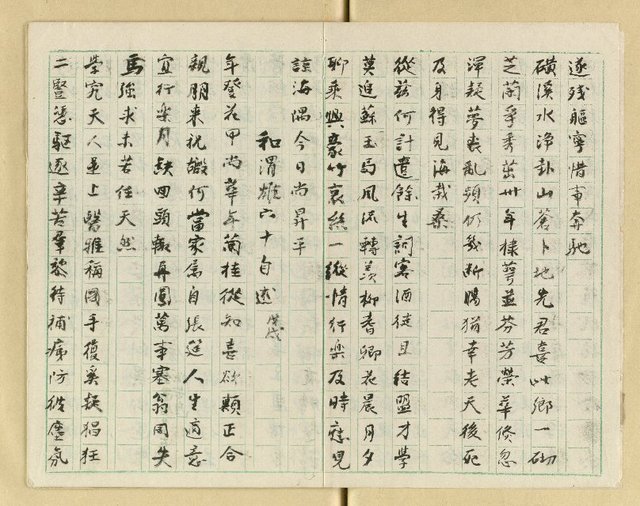 逐殘軀寧惜事奔馳
磺溪水淨卦山蒼卜地先君喜此鄉一硯
芝蘭爭秀茁卅年棣萼並芬芳榮華倏忽
渾疑夢喪亂頻仍幾斷腸猶幸老天後死
及身得見海栽桑
從茲何計遣餘生詞客酒徒且結盟才學
莫追蘇玉局風流轉羨柳耆卿花晨月夕
聊乘興豪竹哀絲一縱情行樂及時應見
諒海隅今日尚昇平
和渭雄六十自述 戊戌
年登花甲尚華年蘭桂從知喜欲顛正合
親朋來祝嘏何當家慶自張筵人生適意
宜行樂月缺回頭輒再圓萬事塞翁同失
馬強求未若任天然
學究天人並上醫雅稱國手復奚疑猖狂
二豎憑驅逐辛苦羣黎待補痍防彼塵氛